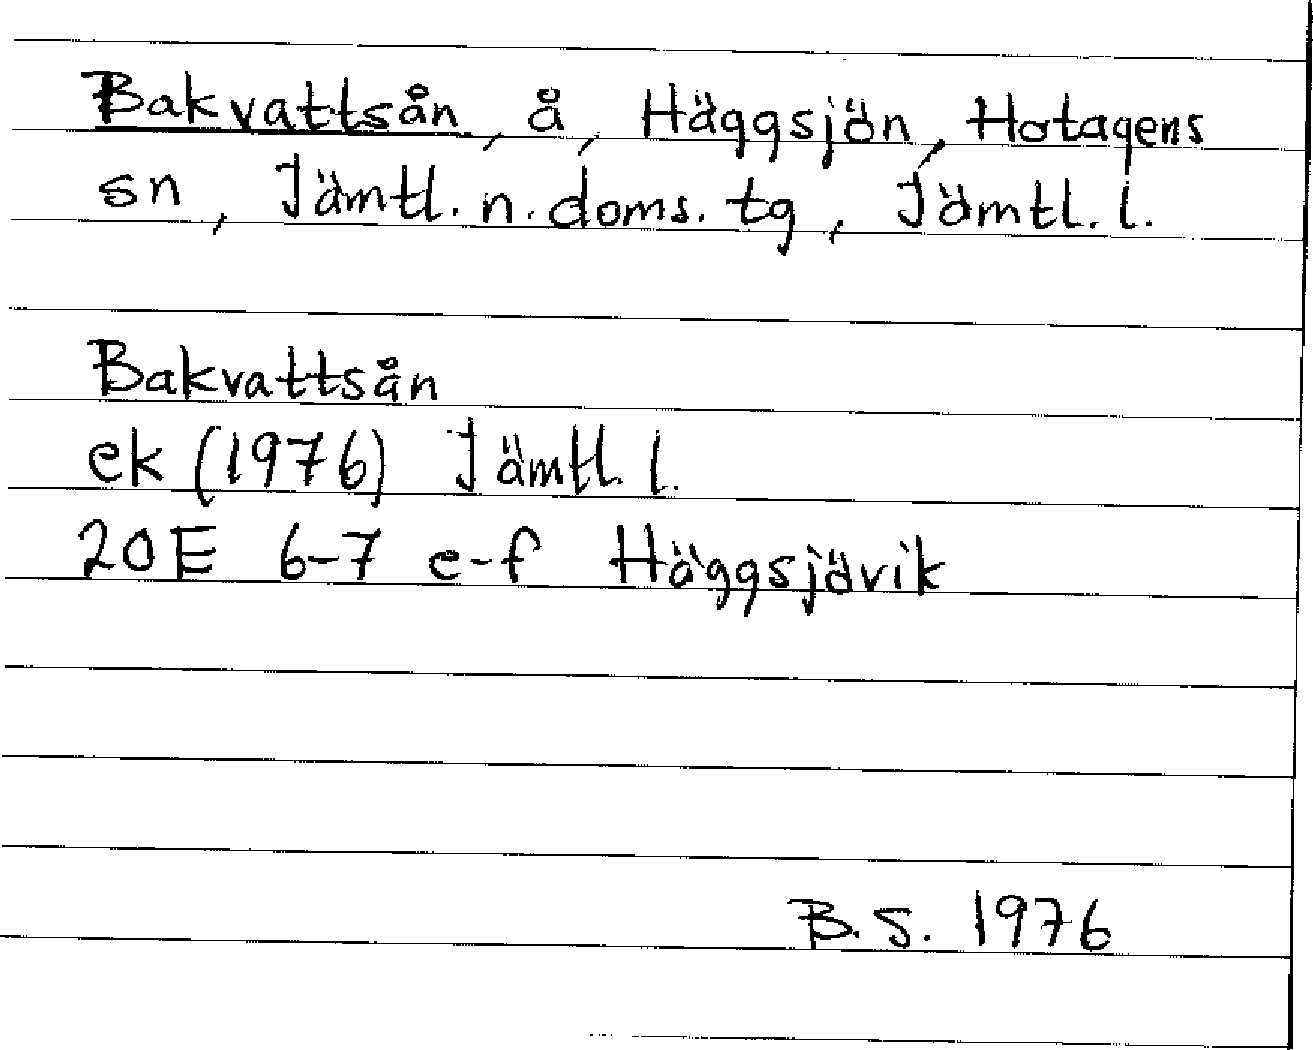 Bakvattsån, å, Häggsjön, Hotagens
sn, Jämtl. n. doms. tg, Jämtl. l.
Bakvattsån
ek (1976) Jämtl. l.
20E 6-7 e-f Häggsjövik
B.S. 1976